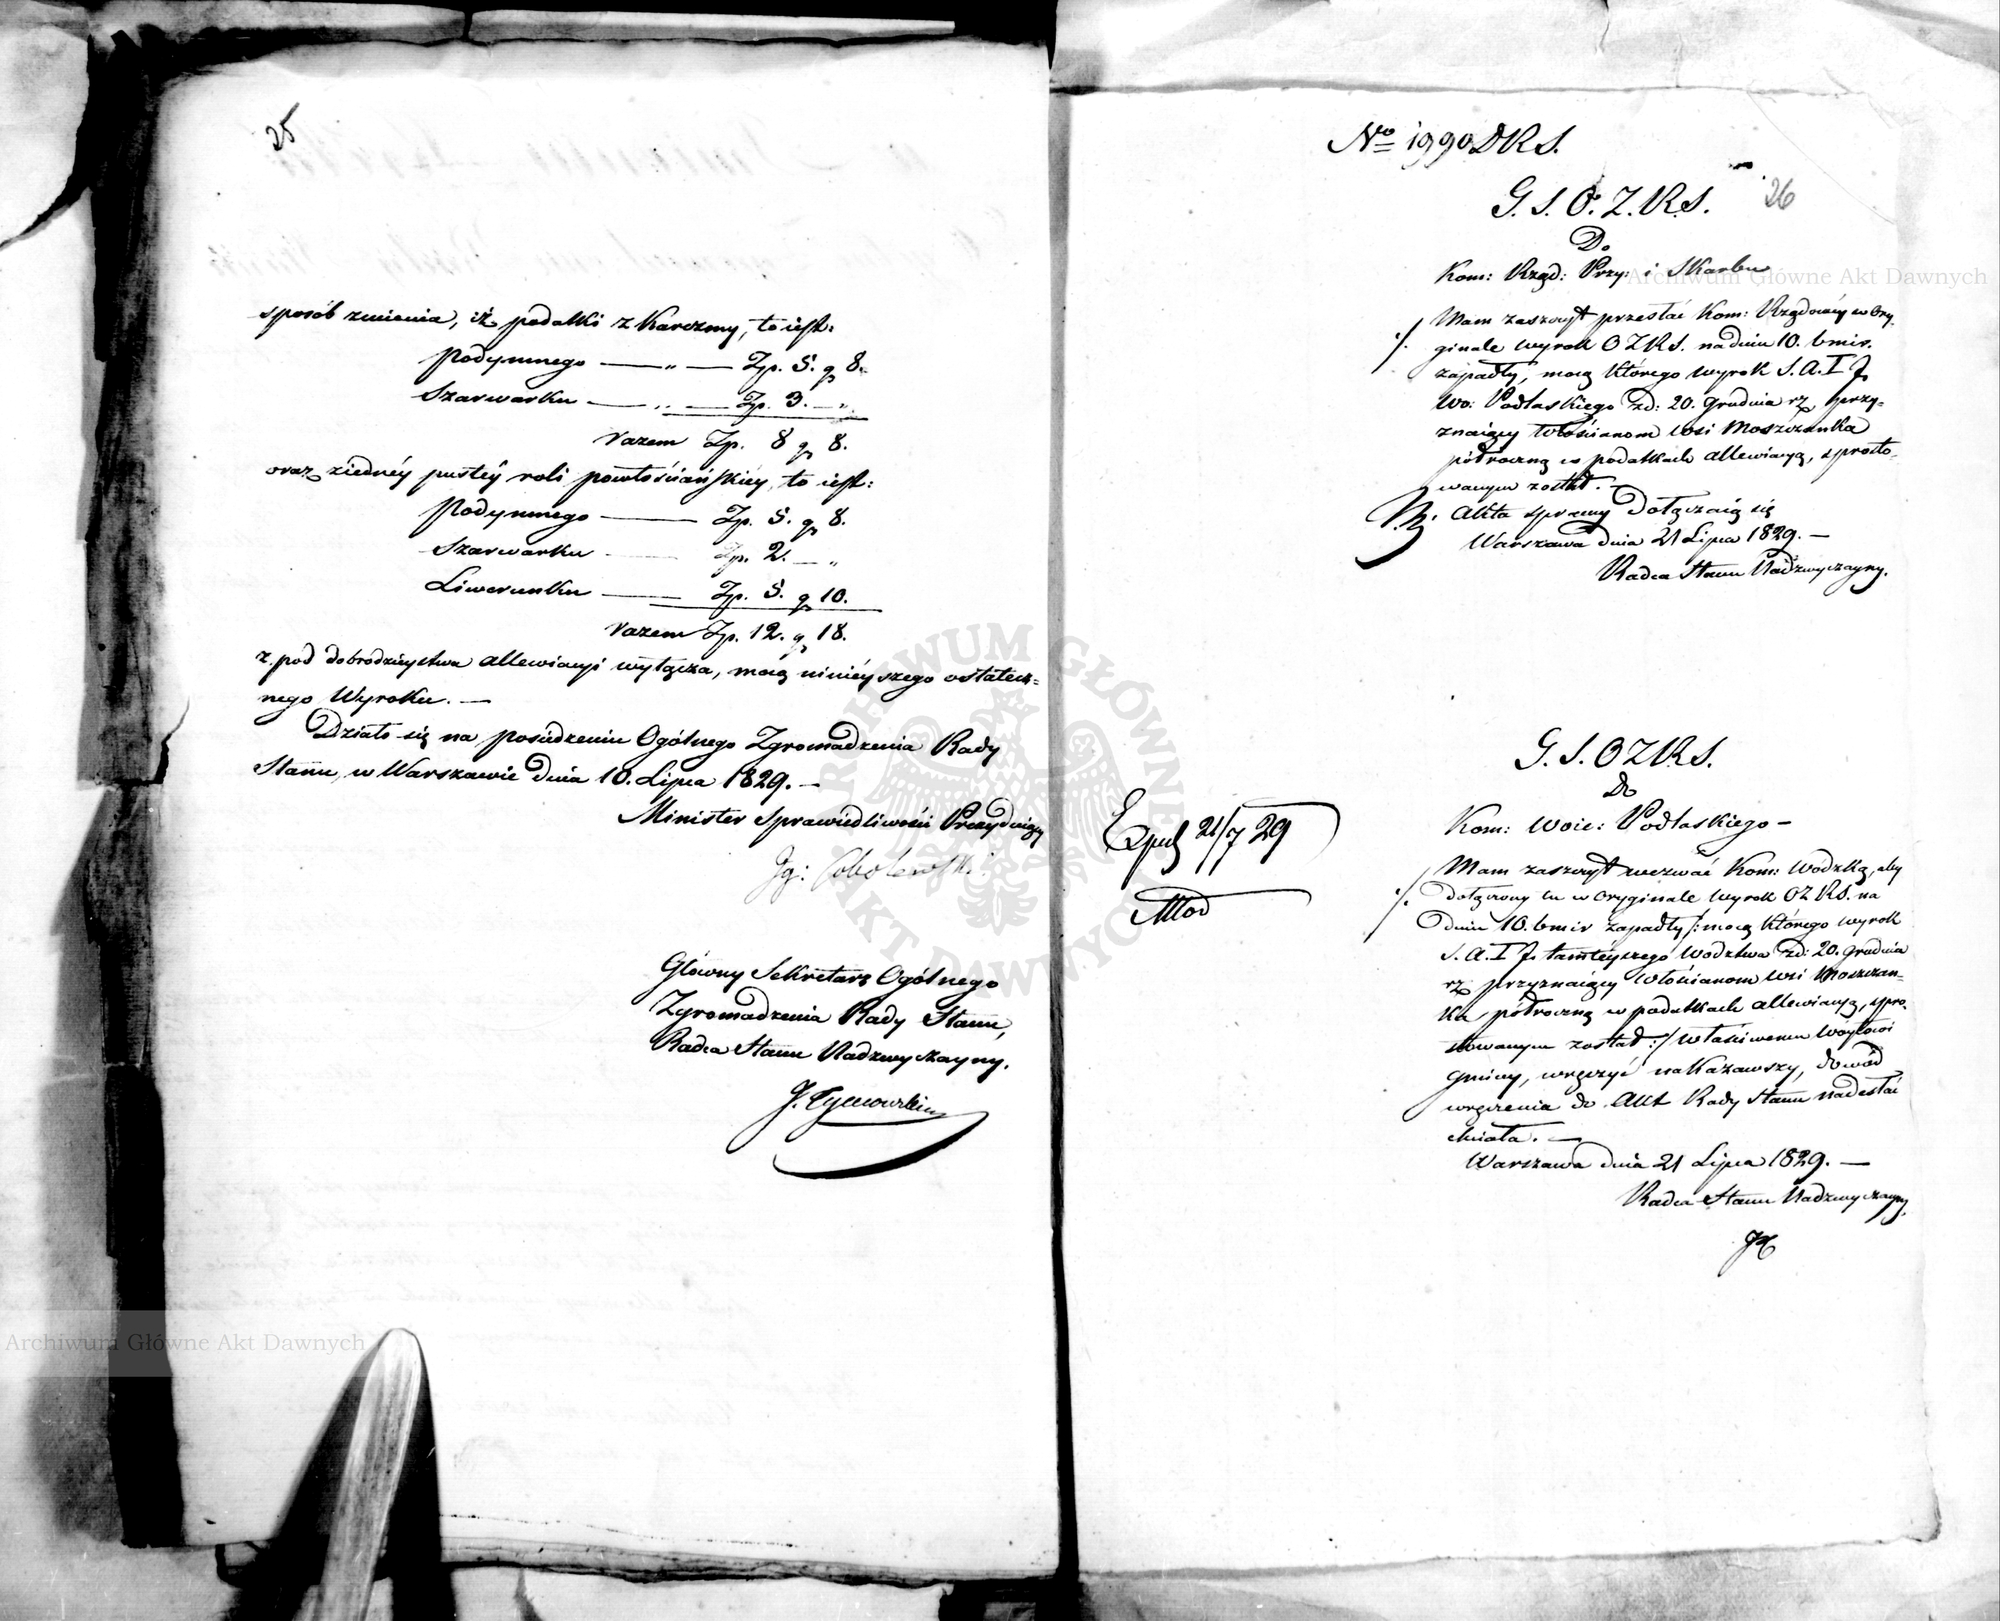 25
sposób zmienia, iż podatki z Karczmy, to iest:
Podymnego — „ — Zp. 5. g 8.
Szarwarku — „ — Zp. 3. — „
razem Zp. 8 g 8.
oraz z iednéy pustéy roli powłościańskiéy, to iest:
Podymnego — Zp. 5. g 8.
Szarwarku — Zp. 2. — „
Liwerunku — Zp. 5. g 10.
razem Zp. 12. g 18.
z pod dobrodzieystwa allewiacyi wyłącza, mocą ninieyszego ostatecz-
nego Wyroku. —
Działo się na posiedzeniu Ogólnego Zgromadzenia Rady
Stanu, w Warszawie dnia 10. Lipca 1829. —
Minister Sprawiedliwości Prezyduiący
Ig: Sobolewski
Główny Sekretarz Ogólnego
Zgromadzenia Rady Stanu,
Radca Stanu Nadzwyczayny.
J. Tymowski
No 1990 DRS.
26
G. S. O. Z. R. S.
Do
Kom: Rząd: Przy: i Skarbu
Mam zaszczyt przesłać Kom: Rządowéy w Ory-
ginale wyrok OZRS. na dniu 10. bmir.
zapadły, mocą którego wyrok S. A. I J.
Wo: Podlaskiego zd: 20. Grudnia rz przy-
znaiący Włościanom wsi Moszczanka
półroczną w podatkach allewiacyą, sprosto-
wanym został. —
Akta sprawy dołączaią się
Warszawa dnia 21 Lipca 1829. —
Radca Stanu Nadzwyczayny.
G. S. OZRS.
do
Kom: Woie: Podlaskiego —
Mam zaszczyt wezwać Kom: Wodzką, aby
dołączony tu w Oryginale wyrok OZRS. na
dniu 10. bmir zapadły /: mocą którego wyrok
S. A. I J. tamteyszego Wodztwa zd: 20. Grudnia
rz przyznaiący Włościanom wsi Moszczan-
ka półroczną w podatkach allewiacyą, spro-
stowanym został :/ właściwemu Wóytowi
Gminy, wręczyć nakazawszy, dowód
wręczenia do Akt Rady Stanu nadesłać
chciała. —
Warszawa dnia 21 Lipca 1829. —
Radca Stanu Nadzwyczayny.
Exped 21/7 29
Archiwum Główne Akt Dawnych
Archiwum Główne Akt Dawnych
ARCHIWUM GŁÓWNE AKT DAWNYCH